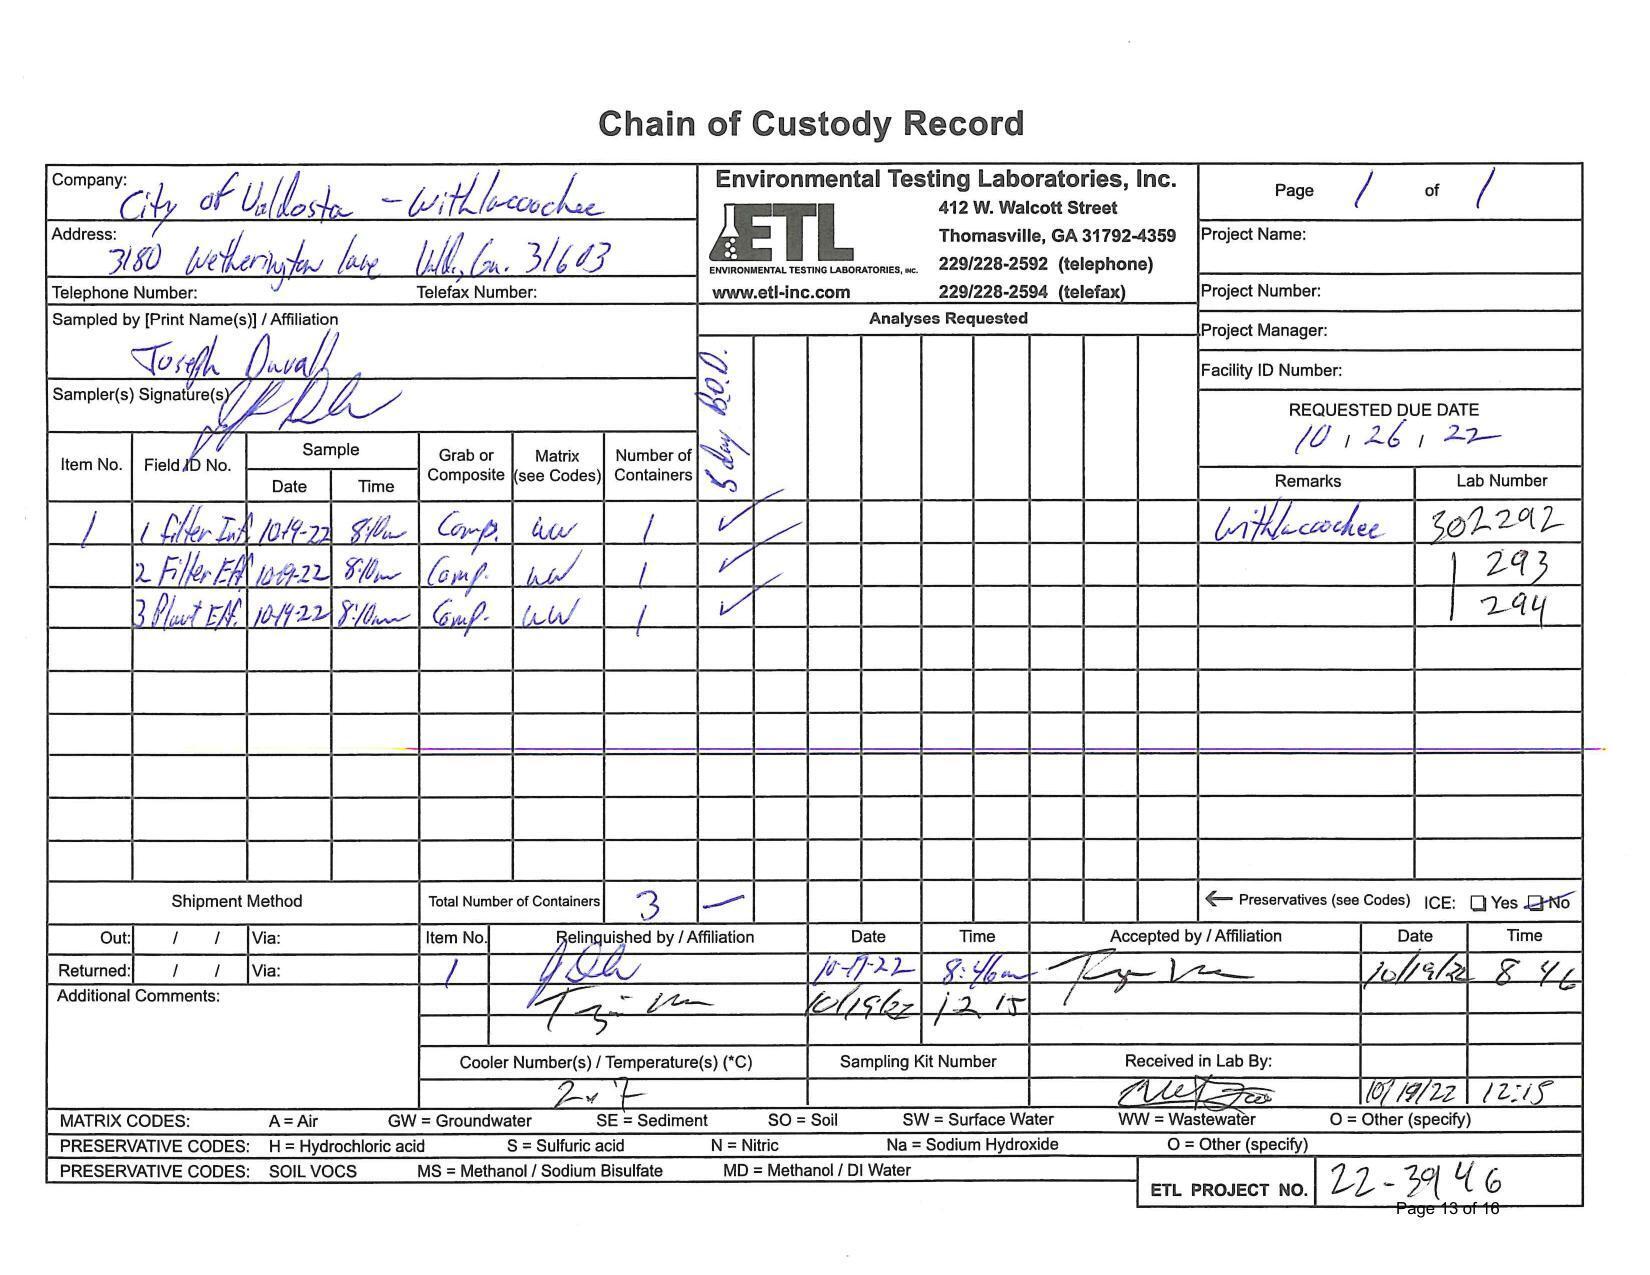 Chain of Custody Record
Company: City of Valdosta - Withlacoochee
Address: 3180 Wetherington Lane Vld., Ga. 31603
Telephone Number: Telefax Number:
Sampled by [Print Name(s)] / Affiliation
Joseph Duvall
Sampler(s) Signature(s)
Environmental Testing Laboratories, Inc.
ETL
ENVIRONMENTAL TESTING LABORATORIES, INC.
www.etl-inc.com
412 W. Walcott Street
Thomasville, GA 31792-4359
229/228-2592 (telephone)
229/228-2594 (telefax)
Page 1 of 1
Project Name:
Project Number:
Project Manager:
Facility ID Number:
REQUESTED DUE DATE
10 , 26 , 22
Analyses Requested
5 day B.O.D.
Item No. Field ID No. Sample Date Time Grab or Composite Matrix (see Codes) Number of Containers Remarks Lab Number
1 1 Filter Inf 10-19-22 8:10am Comp. WW 1 ✓ Withlacoochee 302292
2 Filter Eff 10-19-22 8:10am Comp. WW 1 ✓ 293
3 Plant Eff. 10-19-22 8:10am Comp. WW 1 ✓ 294
Shipment Method Total Number of Containers 3 — ← Preservatives (see Codes) ICE: Yes No
Out: / / Via: Item No. Relinquished by / Affiliation Date Time Accepted by / Affiliation Date Time
Returned: / / Via: 1 8:46am 10/19/22 8 46
Additional Comments: 10/19/22 12 15
Cooler Number(s) / Temperature(s) (*C) Sampling Kit Number Received in Lab By:
2.7 10/19/22 12:15
MATRIX CODES: A = Air GW = Groundwater SE = Sediment SO = Soil SW = Surface Water WW = Wastewater O = Other (specify)
PRESERVATIVE CODES: H = Hydrochloric acid S = Sulfuric acid N = Nitric Na = Sodium Hydroxide O = Other (specify)
PRESERVATIVE CODES: SOIL VOCS MS = Methanol / Sodium Bisulfate MD = Methanol / DI Water
ETL PROJECT NO. 22-3946
Page 13 of 16